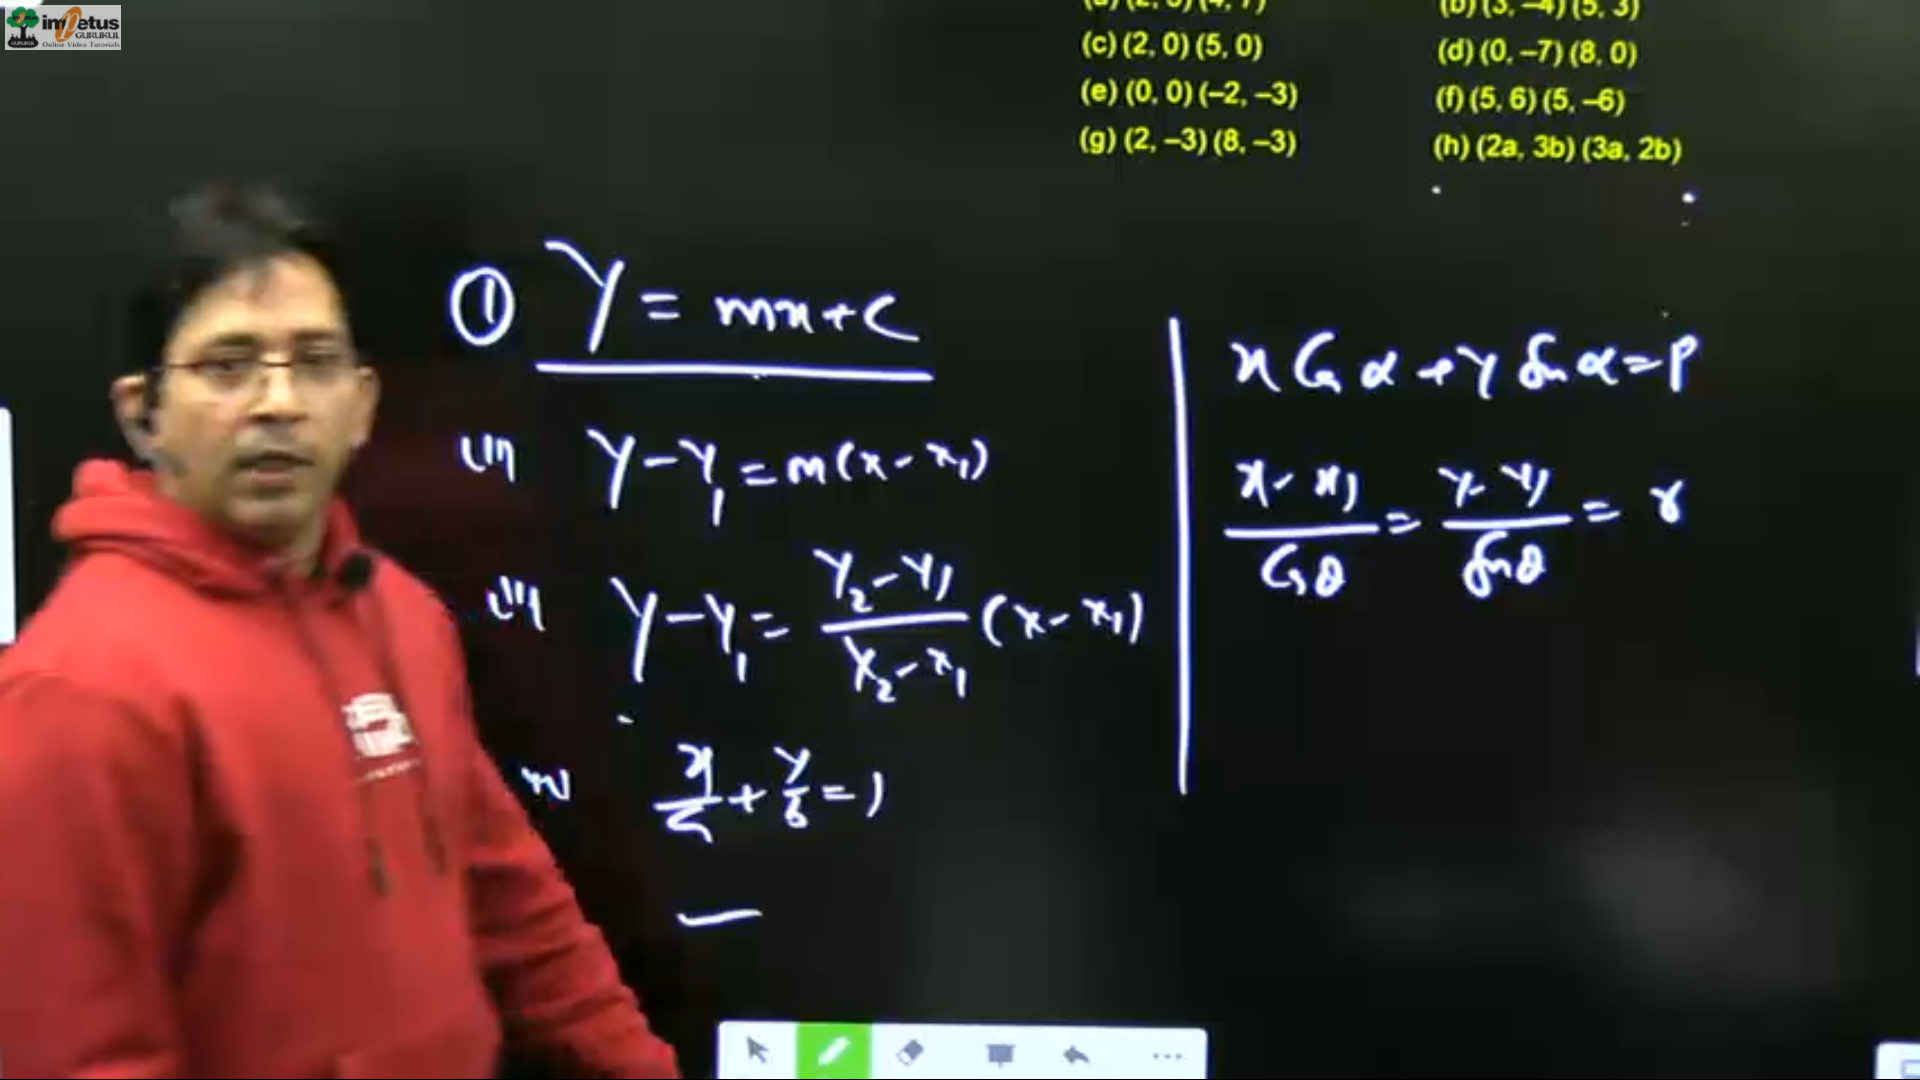 impetus
GURUKUL
Online Video Tutorials
(b) (3, –4) (5, 3)
(c) (2, 0) (5, 0)
(d) (0, –7) (8, 0)
(e) (0, 0) (–2, –3)
(f) (5, 6) (5, –6)
(g) (2, –3) (8, –3)
(h) (2a, 3b) (3a, 2b)
① Y = mx+c
(ii) Y-Y₁ = m(x-x₁)
(iii) Y-Y₁ = (Y₂-Y₁)/(X₂-X₁) (x-x₁)
iv x/a + y/b = 1
x Cos α + y Sin α = P
(x-x₁)/Cos θ = (y-y₁)/Sin θ = r